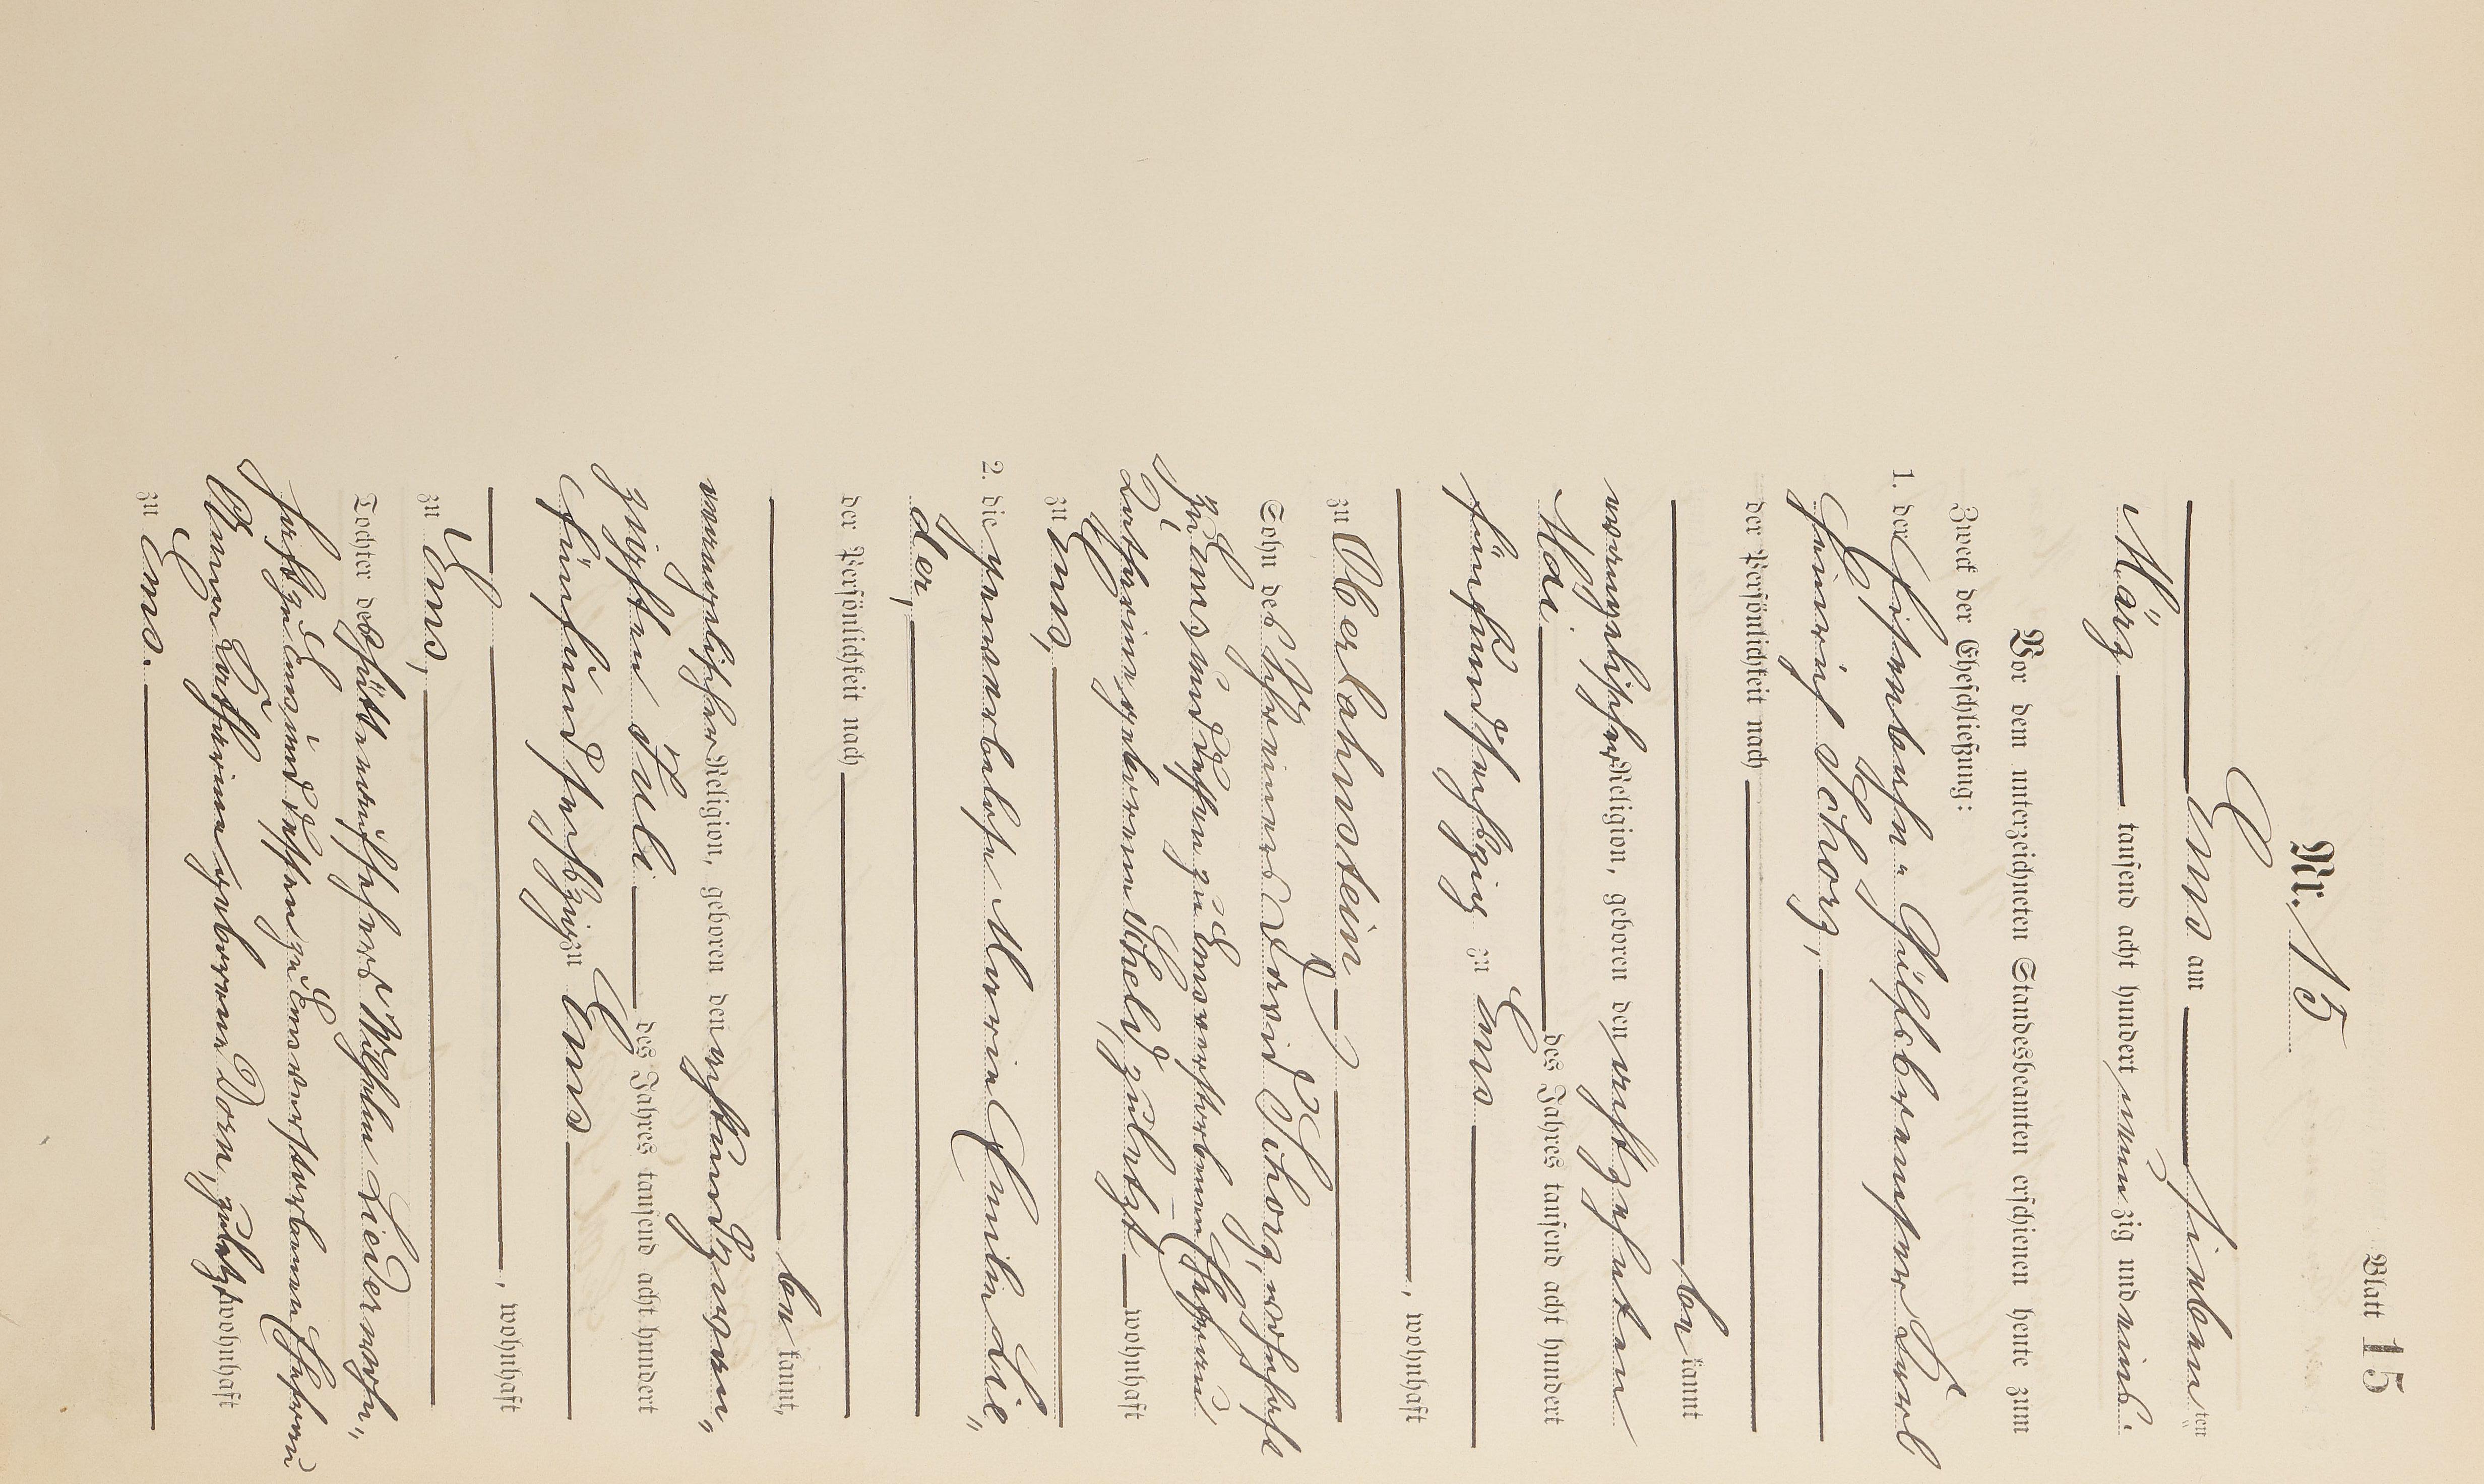 Blatt 15
Nr. 15
Ems am sieben ten
März tausend acht hundert neunzig und eins.
Vor dem unterzeichneten Standesbeamten erschienen heute zum
Zweck der Eheschließung:
1. der Eisenbahn- Hülfsbremser Karl
Heinrich Schorg,
der Persönlichkeit nach
be kannt,
evangelischer Religion, geboren den achtzehnten
Mai des Jahres tausend acht hundert
fünfundsechzig zu Ems
, wohnhaft
zu Oberlahnstein
Sohn des Schreiners David Schorg, wohnhaft
zu Ems und dessen zu Ems verstorbenen Ehefrau
Katharine geborenen Scheld, zuletzt wohnhaft
zu Ems,
2. die gewerblose Marie Emilie Lie„
der,
der Persönlichkeit nach
be kannt,
evangelischer Religion, geboren den achtundzwan„
zigsten Juli des Jahres tausend acht hundert
fünfundsechzig zu Ems
, wohnhaft
zu Ems,
Tochter des Hüttenaufsehers Wilhelm Lieder wohn„
haft zu Ems und dessen zu Ems verstorbenen Ehefrau
Anna Kathrine geborene Dorn, zuletzt wohnhaft
zu Ems.